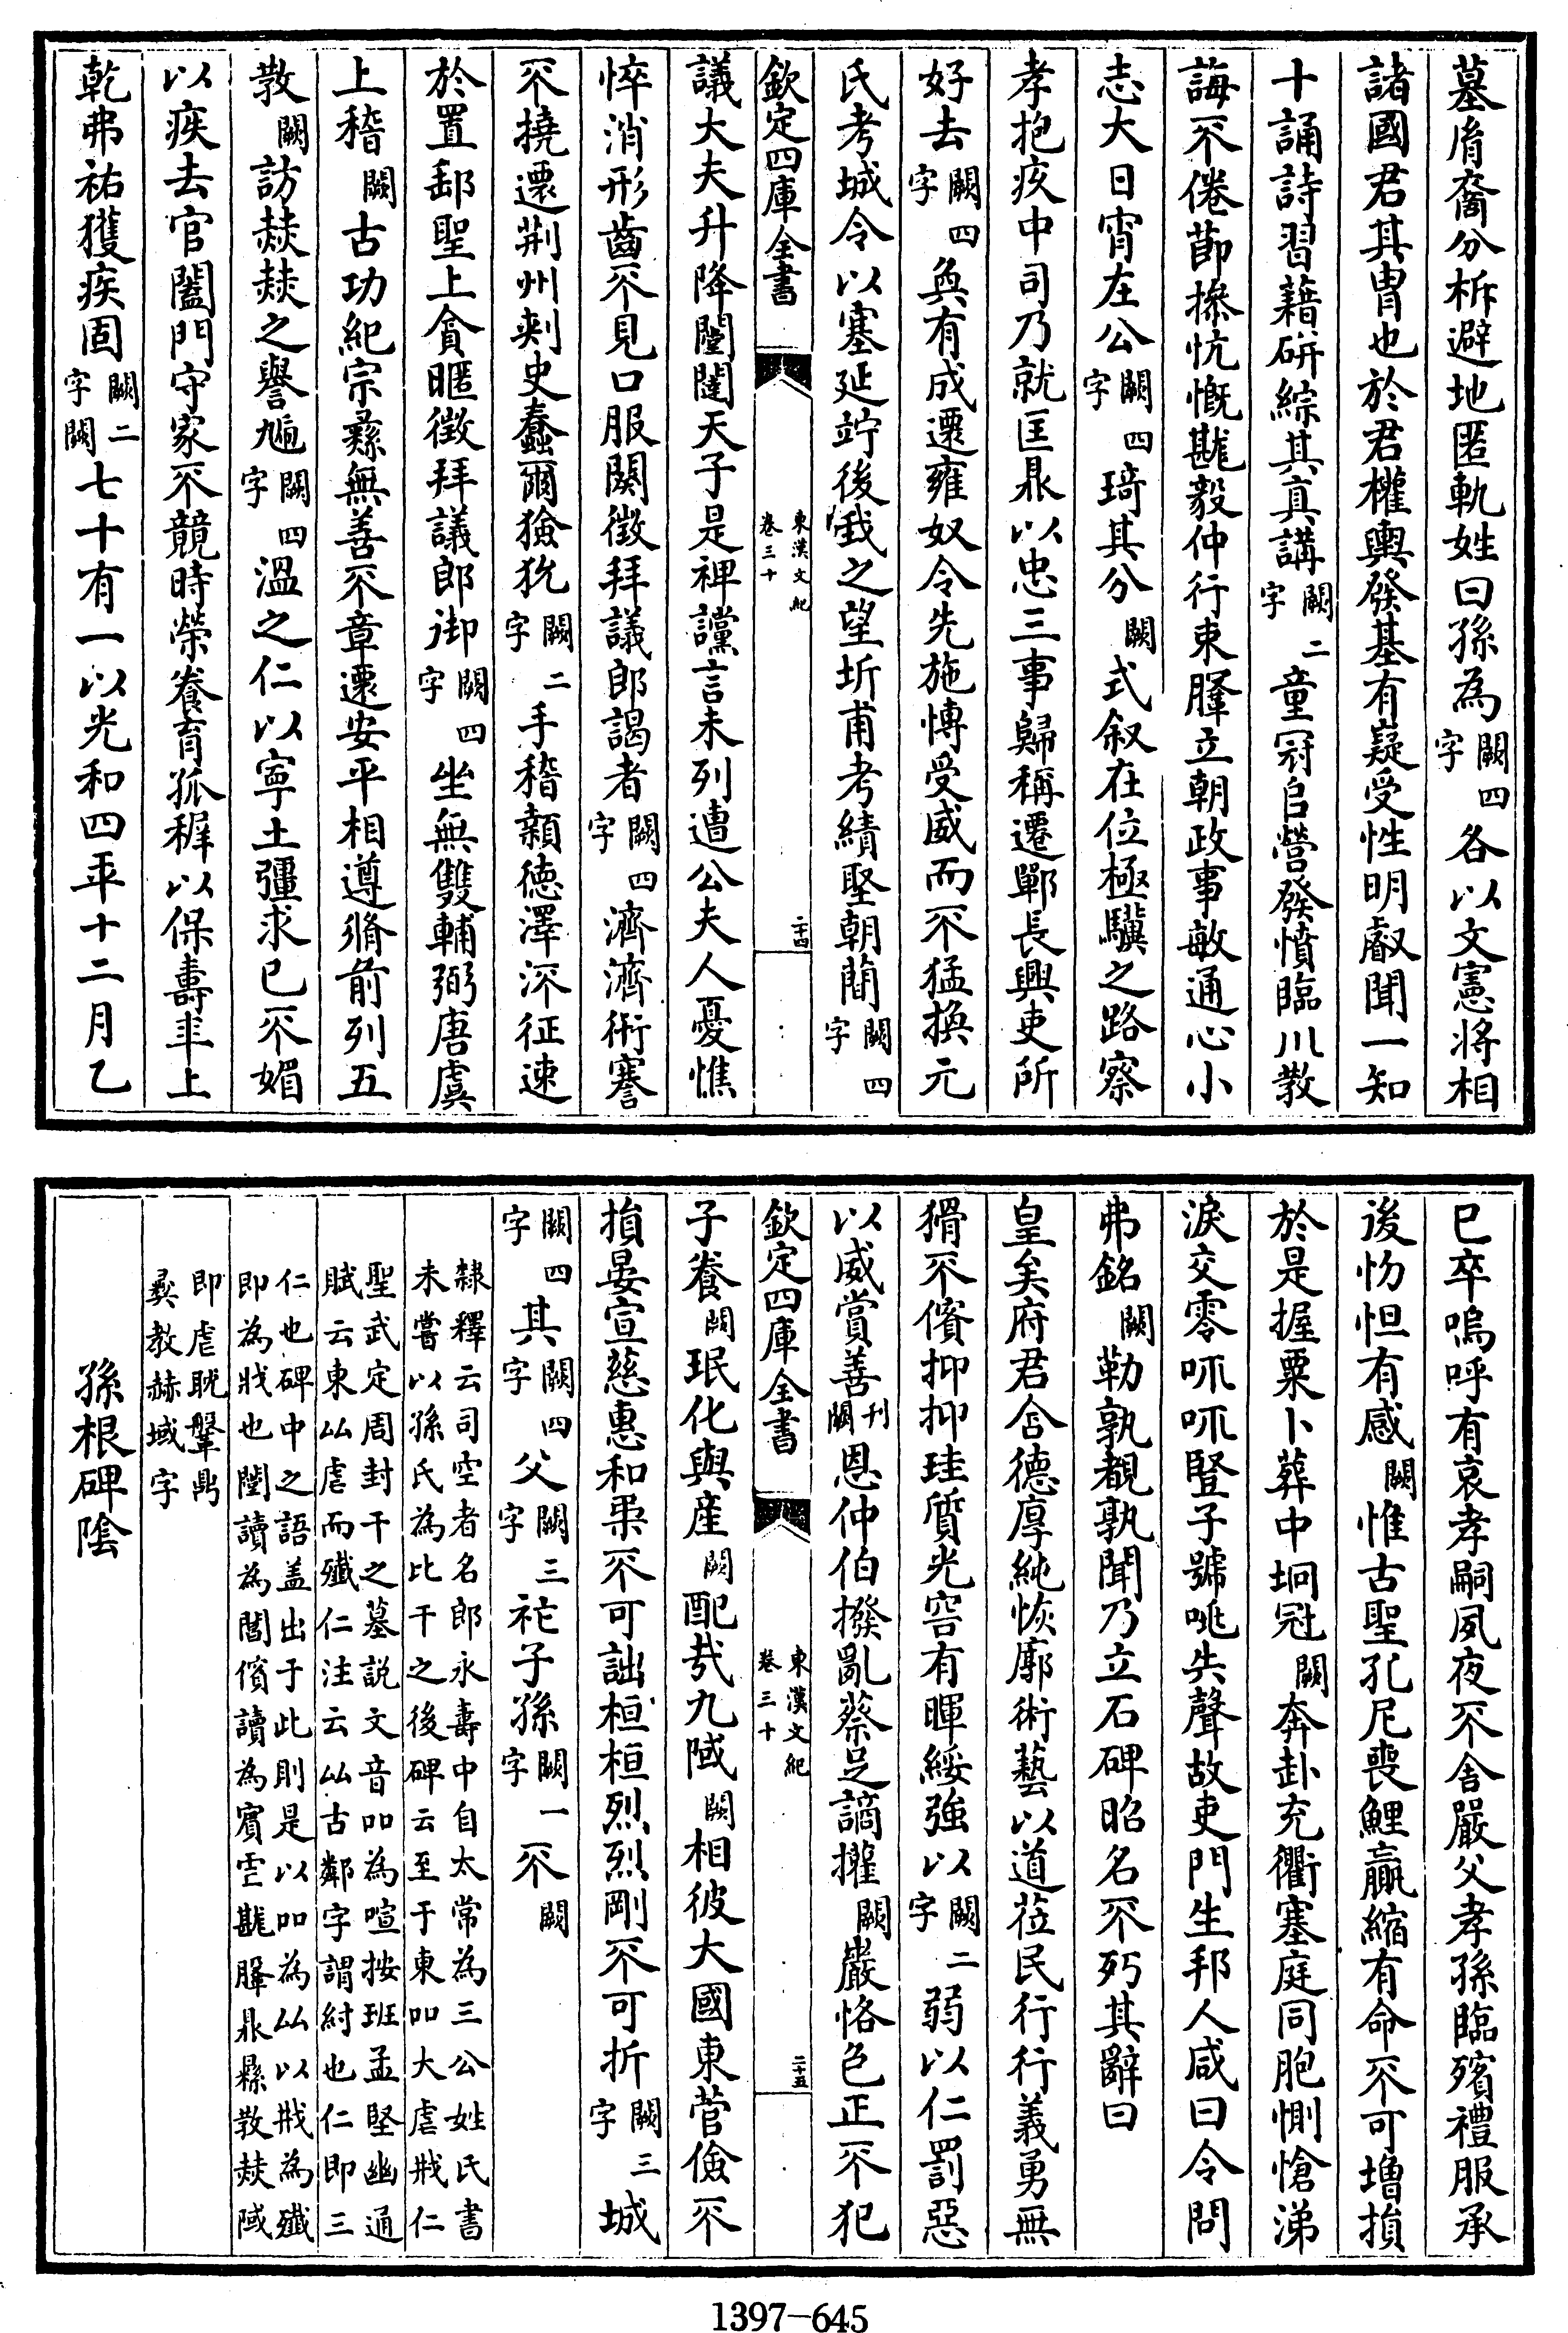 墓胤裔分柝避地匿軌姓曰孫為闕四字各以文憲將相
諸國君其胄也於君權輿發基有嶷受性明叡聞一知
十誦詩習藉硏綜其真講闕二字童冠㠯營發憤臨川敎
誨不倦莭搽忼慨戡毅仲行束脩立朝政事敏通心小
志大日宵在公闕四字琦其分闕式叙在位極驥之路察
孝抱疢中司乃就匡鼎以忠三事歸稱遷鄲長興吏所
好去闕四字奐有成遷雍奴令先施愽受威而不猛換元
氏考城令以塞延竚後我之望圻甫考績堅朝蕳闕四字
欽定四庫全書
東漢文紀
卷三十
二十四
議大夫升降闥闥天子是裨讜言未列遭公夫人憂憔
悴消形齒不見口服闋徵拜議郎謁者闕四字濟濟術謇
不撓遷荆州刺史蠢爾獫狁闕二字手稽顙德澤㴱征速
於置郵聖上貪曙徵拜議郎御闕四字坐無雙輔弼唐虞
上稽闕古功紀宗彞無善不章遷安平相遵脩前列五
敎闕訪㷼㷼之譽馗闕四字溫之仁以寧土彊求已不媚
以疾去官闔門守家不競時榮養育孤穉以保壽年上
乾弗祐獲疾固闕二字闕七十有一以光和四年十二月乙
巳卒嗚呼有哀孝嗣夙夜不舍嚴父孝孫臨殯禮服承
後忉怛有感闕惟古聖孔尼喪鯉贏縮有命不可增損
於是握粟卜葬中坰冠闕奔赴充衢塞庭同胞惻愴涕
淚交零呱呱豎子號咷失聲故吏門生邦人咸曰令問
弗銘闕勒孰覩孰聞乃立石碑昭名不朽其辭曰
皇矣府君含德厚純恢廓術藝以道莅民行行義勇無
猾不儐抑抑珪質光容有暉綏強以闕二字弱以仁罰惡
以威賞善刊闕恩仲伯撥亂蔡足謫㩲闕嚴恪色正不犯
欽定四庫全書
東漢文紀
卷三十
二十五
子養闕珉化與産闕配㢤九㦿闕相彼大國東菅儉不
損晏宣慈惠和柔不可詘桓桓烈烈剛不可折闕三字城
闕四字其闕四字父闕三字祂子孫闕一字不闕
隸釋云司空者名郎永壽中自太常為三公姓氏書
未嘗以孫氏為比干之後碑云至于東吅大虐戕仁
聖武定周封干之墓説文音吅為喧按班孟堅幽通
賦云東厸虐而殲仁注云厸古鄰字謂紂也仁即三
仁也碑中之語盖出于此則是以吅為厸以戕為殲
即為戕也闥讀為闇儐讀為賓雲戡脩鼎縣敎㷼㦿
即虐躭鞶鼎
彛教赫域字
孫根碑隂
1397-645